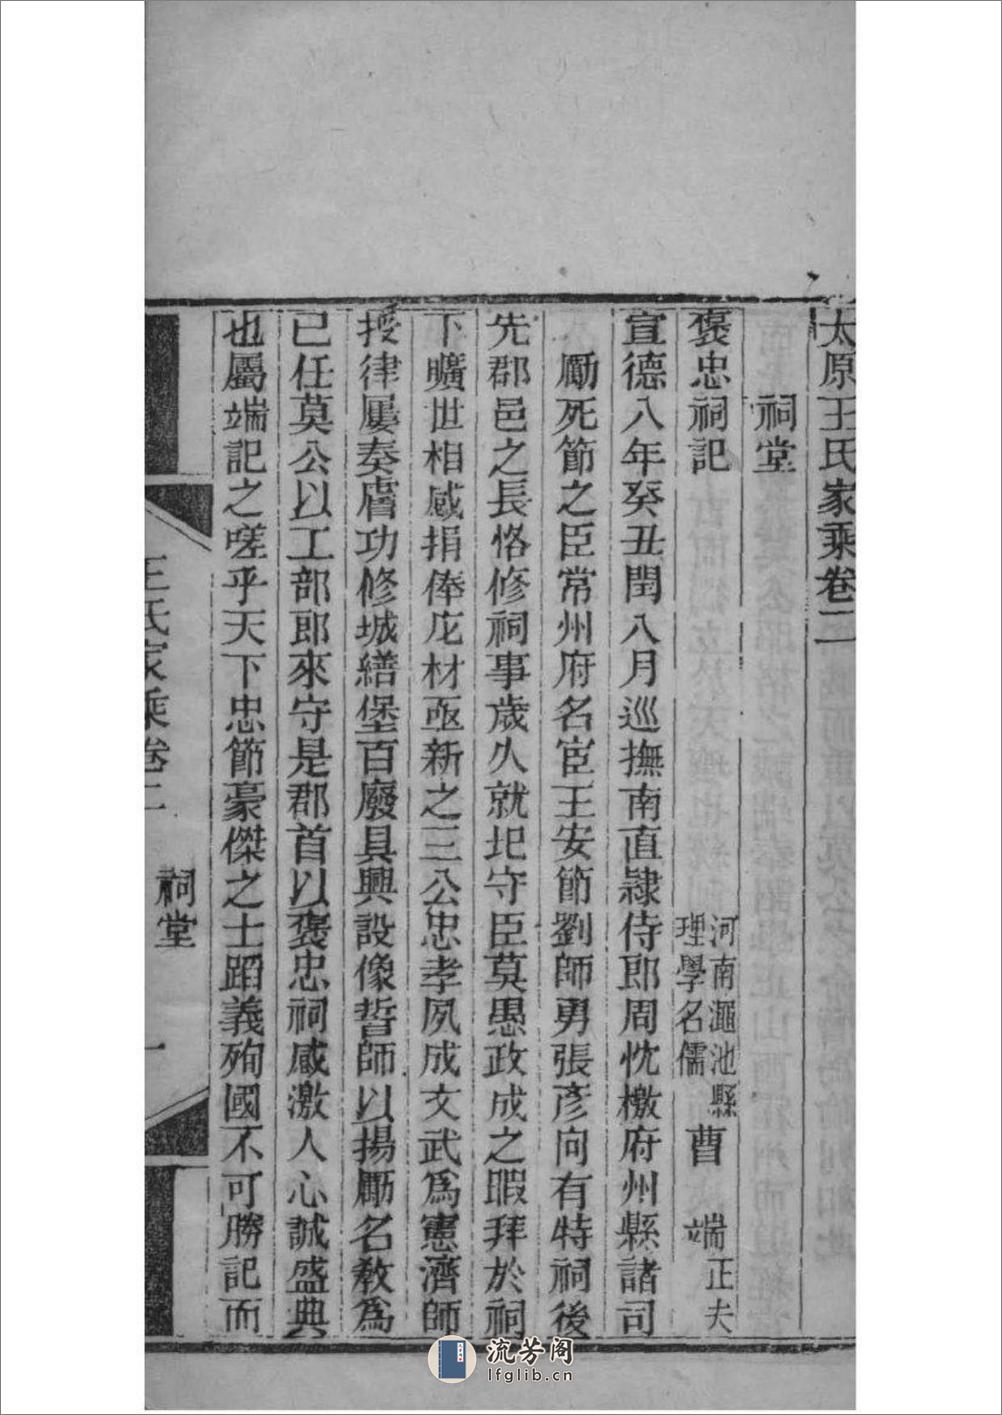 太原王氏家乘卷二
祠堂
褒忠祠記
河南澠池縣
理學名儒
曹端正夫
宣德八年癸丑閏八月巡撫南直隷侍郎周忱檄府州縣諸司
勵死節之臣常州府名宦王安節劉師勇張彥向有特祠後
先郡邑之長恪修祠事歲久就圯守臣莫愚政成之暇拜於祠
下曠世相感捐俸庀材亟新之三公忠孝夙成文武為憲濟師
授律屢奏膚功修城繕堡百廢具興設像誓師以揚厲名教為
已任莫公以工部郎來守是郡首以褒忠祠感激人心誠盛典
也屬端記之嗟乎天下忠節豪傑之士蹈義殉國不可勝記而
王氏家乘卷二
祠堂
一
流芳阁
lfglib.cn